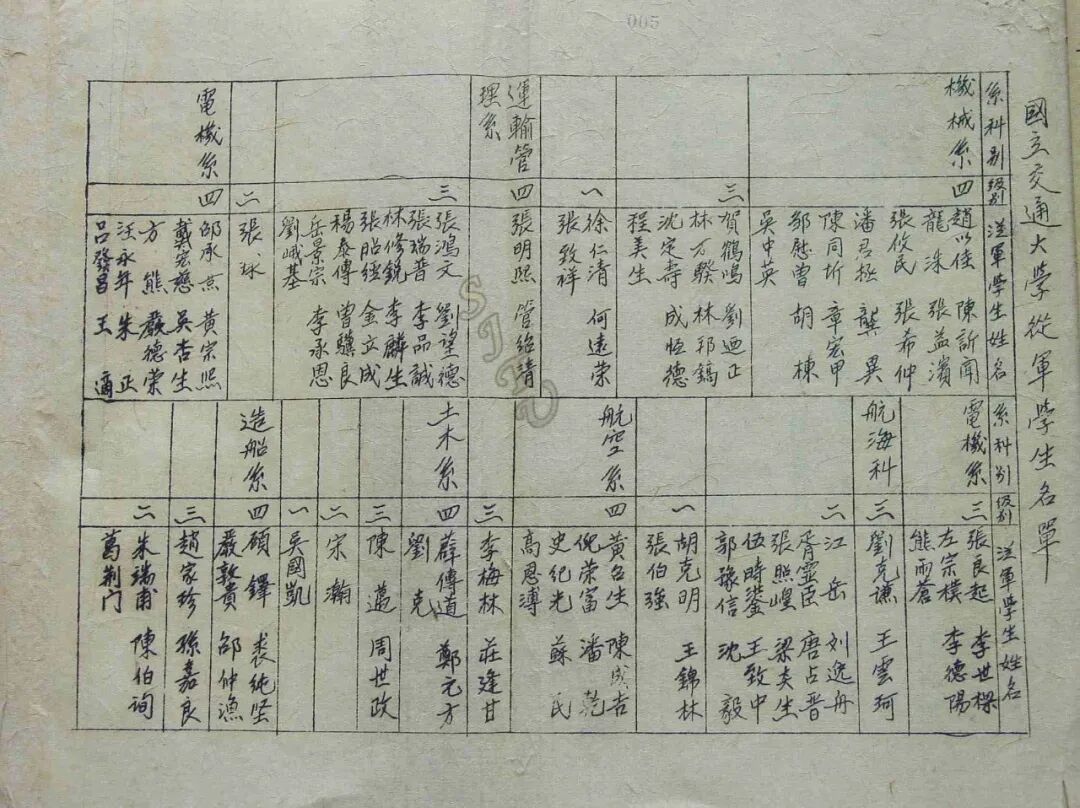 005
國立交通大學從軍學生名單
系科别
級别
從軍學生姓名
機械系
四
趙以佳 陳訢聞
龍洙 張益濱
張攸民 張希仲
潘君拯 龔異
陳同圻 章宏甲
鄒慰曾 胡棟
吳中英
三
賀鶴鳴 劉迺正
林万騤 林邦鎬
沈定壽 成恒德
程美生
一
徐仁清 何遠荣
張致祥
運輸管理系
四
張明熙 管紹清
三
張鴻文 劉望德
張瑞普 李品誠
林修銳 李麟生
張昭經 金立成
楊泰傳 曾驥良
岳景宗 李承思
劉咸基
二
張球
電機系
四
邹承亰 黃宗熙
戴宏慈 吳杏生
方熊 嚴德荣
汪永年 朱正
呂發昌 王適
系科别
級别
從軍學生姓名
電機系
三
張良起 李世樑
左宗樸 李德陽
熊雨蒼
航海科
三
劉克谦 王雲珂
二
江岳 刘逸舟
胥霊臣 唐占晋
張照煌 梁炎生
伍時鎏 王致中
郭豫信 沈毅
一
胡克明 王錦林
張伯强
航空系
四
黃名生 陳成吉
倪荣富 潘亁
史纪光 蘇民
高恩溥
三
李梅林 莊逢甘
土木系
四
薛傳道 鄭元方
劉克
三
陳邁 周世政
二
宋瀚
一
吳國凱
造船系
四
碩鐸 裘純坚
嚴敦貴 邹仲渔
三
趙家珍 孫嘉良
二
朱瑞甫 陳伯詢
葛荆门
SJTU